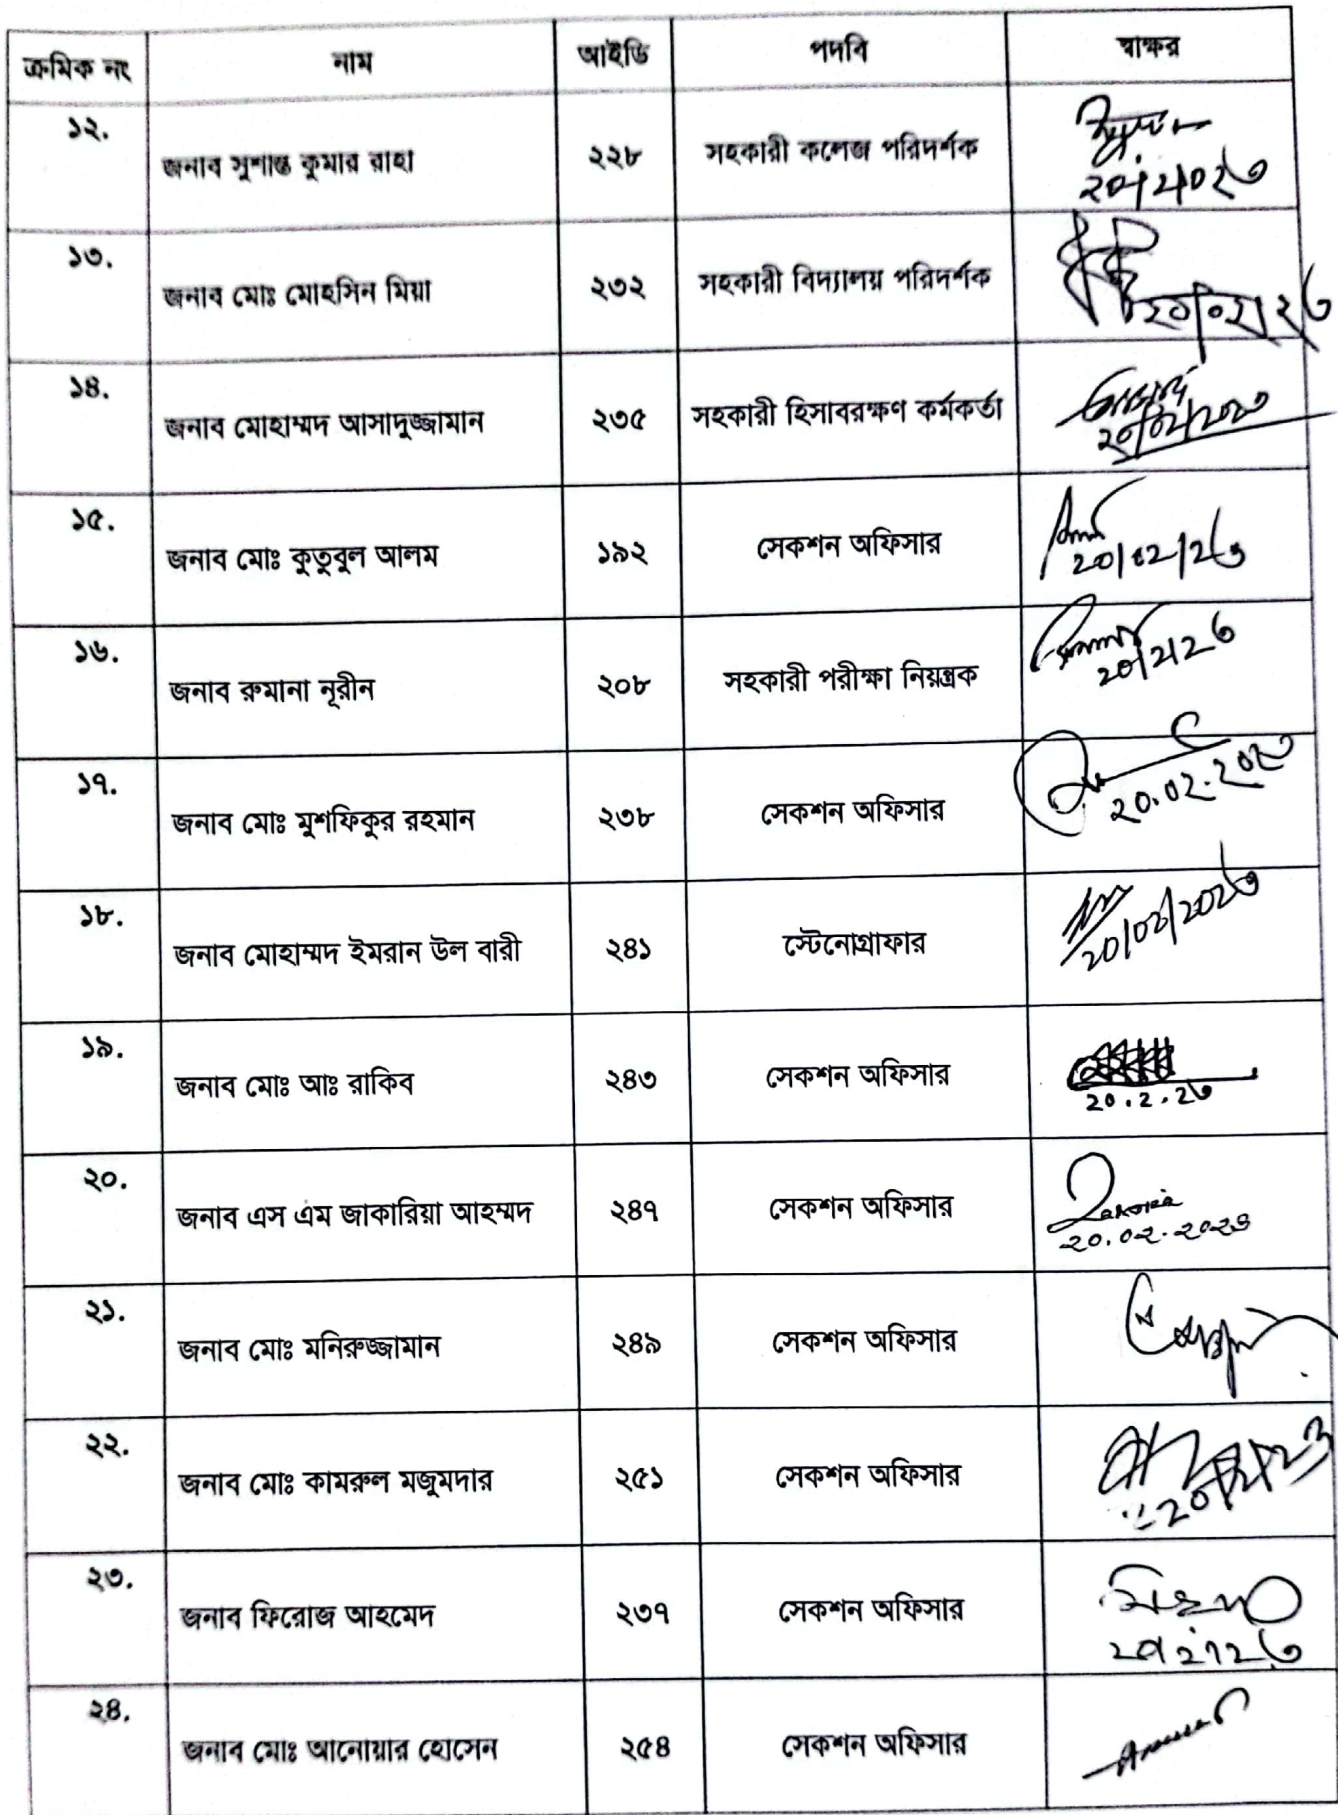 ক্রমিক নং নাম আইডি পদবি স্বাক্ষর
১২. জনাব সুশান্ত কুমার রাহা ২২৮ সহকারী কলেজ পরিদর্শক
১৩. জনাব মোঃ মোহসিন মিয়া ২৩২ সহকারী বিদ্যালয় পরিদর্শক
১৪. জনাব মোহাম্মদ আসাদুজ্জামান ২৩৫ সহকারী হিসাবরক্ষণ কর্মকর্তা
১৫. জনাব মোঃ কুতুবুল আলম ১৯২ সেকশন অফিসার
১৬. জনাব রুমানা নূরীন ২০৮ সহকারী পরীক্ষা নিয়ন্ত্রক
১৭. জনাব মোঃ মুশফিকুর রহমান ২৩৮ সেকশন অফিসার
১৮. জনাব মোহাম্মদ ইমরান উল বারী ২৪১ স্টেনোগ্রাফার
১৯. জনাব মোঃ আঃ রাকিব ২৪৩ সেকশন অফিসার
২০. জনাব এস এম জাকারিয়া আহম্মদ ২৪৭ সেকশন অফিসার
২১. জনাব মোঃ মনিরুজ্জামান ২৪৯ সেকশন অফিসার
২২. জনাব মোঃ কামরুল মজুমদার ২৫১ সেকশন অফিসার
২৩. জনাব ফিরোজ আহমেদ ২৩৭ সেকশন অফিসার
২৪. জনাব মোঃ আনোয়ার হোসেন ২৫৪ সেকশন অফিসার